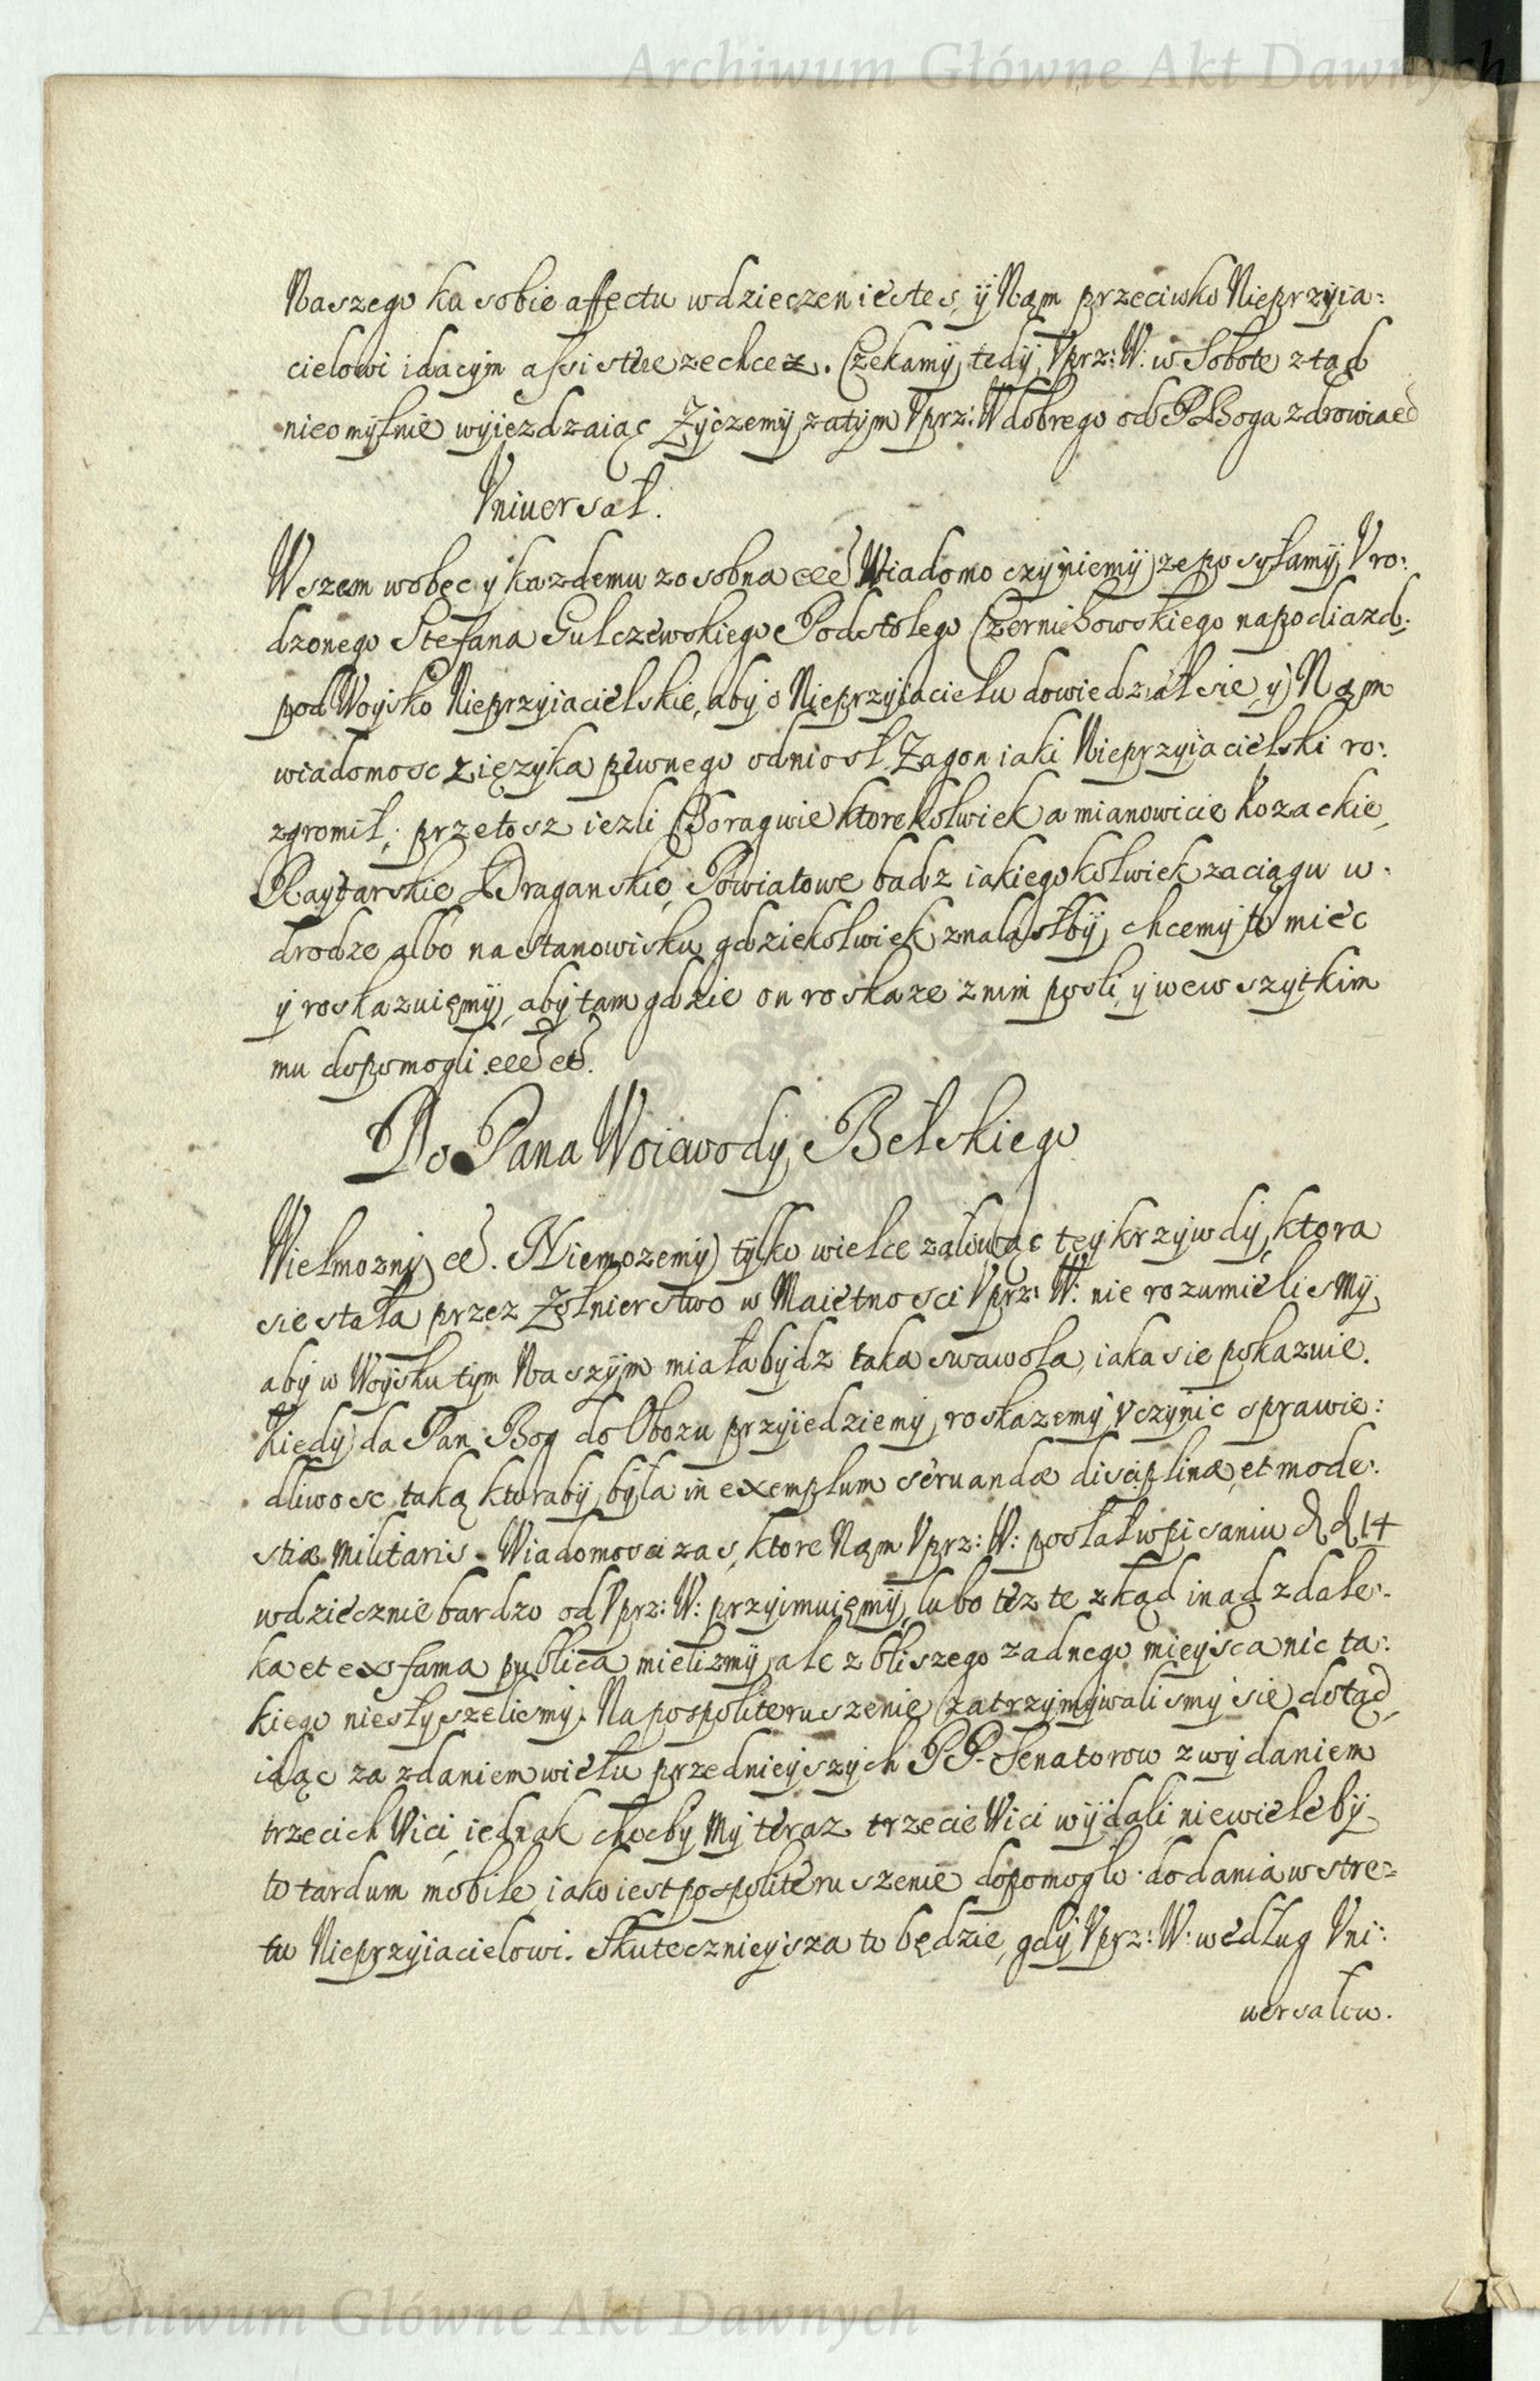 Archiwum Główne Akt Dawnych
Naszego ku sobie affectu wdzieczen iestes, ÿ Nąm przeciwko Nieprzyia:
cielowi idącÿm assistere zechcez. Czekamÿ tedÿ Vprz: W: w Sobote ztąd
nieomÿlnie wyiezdzaiąc Zÿczemÿ zatÿm Vprz: W dobrego od P. Boga zdrowia ec
Vniuersał.
Wszem wobec y kazdemu zosobna ecc Wiadomo czÿniemÿ, ze posyłamÿ Vro:
dzonego Stefana Gulczewskiego Podstolego Czerniho​wskiego na podiazd.
pod Woÿsko Nieprzyiacielskie, abÿ o Nieprzÿiacielu dowiedział sie, y Nąm
wiadomosc z ięzÿka pewnego odniosł. Zagon iaki Nieprzyiacielski ro:
zgromił; przetosz iezli Choragwie ktorekolwiek a mianowicie Kozackie,
Raytarskie, Draganskie, Powiatowe badz iakiegokolwiek zaciągu w
drodze albo na stanowisku gdziekolwiek znalasłbÿ, chcemÿ to miec
ÿ roskazuięmÿ, abÿ tam gdzie on roskaze z nim posli, ÿ we wszÿtkim
mu dopomogli. ecc etc.
Do Pana Woiewodÿ Bełskiego
Wielmoznÿ ec. Niemozemÿ tÿlko wielce załuiąc teÿ krzÿwdÿ, ktora
sie stała przez Zołnierstwo w Maiętnosci Vprz: W: nie rozumielismÿ,
abÿ w Woÿsku tÿm Naszÿm miała bÿdz taka swawola, iaka sie pokazuie.
Kiedÿ da Pan Bog do Obozu przÿiedziemÿ, roskazemÿ vczÿnic sprawie:
dliwosc taką, ktorabÿ bÿła in exemplum seruandæ disciplinæ, et mode:
stiæ militaris. Wiadomosci zas, ktore Nąm Vprz: W: posłał w pisaniu d d 14
wdziecznie bardzo od Vprz: W: przÿimuięmÿ, lubo tez te zkąd inąd zdale:
ka et ex fama publica mielizmÿ, ale z bliszego zadnego mieÿsca nic ta:
kiego niesłÿszelismÿ. Na pospolite ruszenie zatrzymÿwalismÿ sie dotąd,
idąc za zdaniem wielu przednieÿszÿch P.P. Senatorow z wÿdaniem
trzecich Wici, iednak chocbÿ Mÿ teraz trzecie Wici wÿdali, niewielebÿ
to tardum mobile, iako iest pospolite ruszenie dopomogło do dania wstre:
tu Nieprzyiacielowi. Skutecznieÿsza to będzie, gdÿ Vprz: W: według Vni:
uersałow.
Archiwum Główne Akt Dawnych